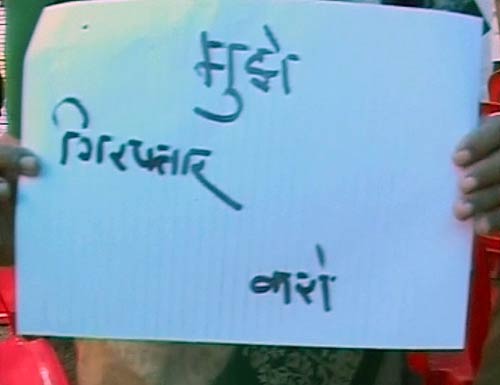 मुझे
गिरफ्तार
करो